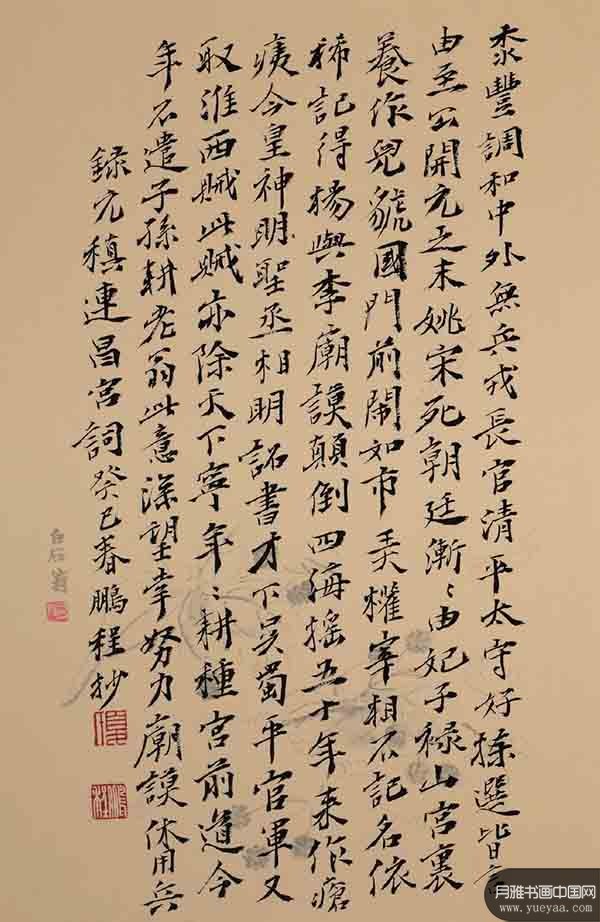 黍豐調和中外無兵戎長官清平太守好揀選皆言
由至公開元之末姚宋死朝廷漸〻由妃子禄山宮裏
養作兒虢國門前鬧如市弄權宰相不記名依
稀記得楊與李廟謨顛倒四海搖五十年來作瘡
痍今皇神明聖丞相明詔書才下吳蜀平官軍又
取淮西賊此賊亦除天下寧年〻耕種宮前道今
年不遣子孫耕老翁此意深望幸努力廟謨休用兵
録元稹連昌宮詞癸巳春鵬程抄
白石翁
月雅书画中国网
www.yueyaa.com